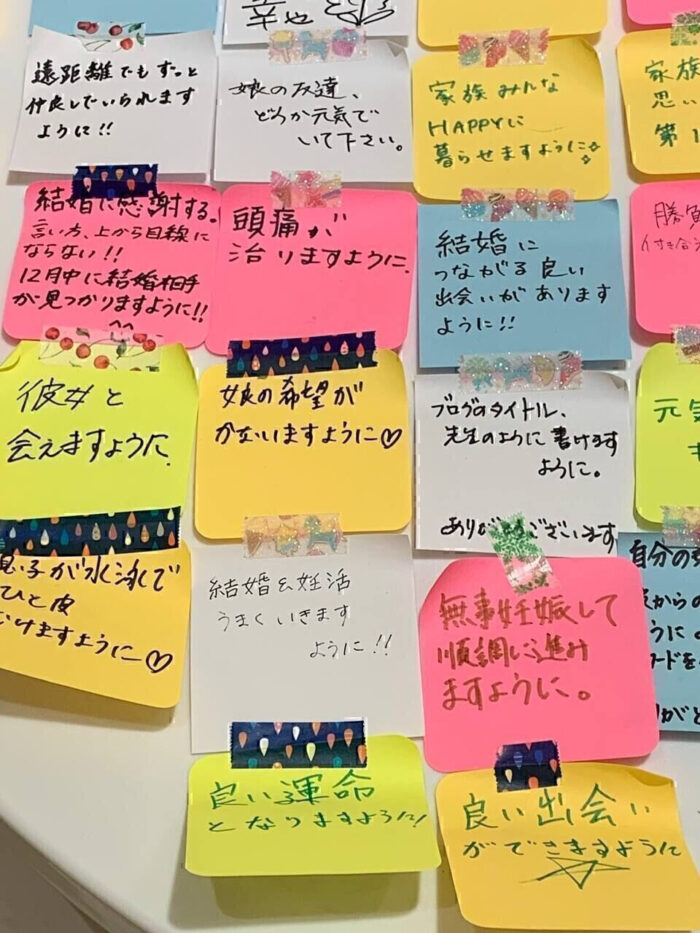 幸せ
遠距離でもずっと
仲良しでいられます
ように!!
娘の友達、
どうか元気で
いて下さい。
家族みんな
HAPPYに
暮らせますように☆
家族
思い
第1
結婚に感謝する。
言い方、上から目線に
ならない!!
12月中に結婚相手
が見つかりますように!!
頭痛が
治りますように.
結婚に
つながる良い
出会いがあります
ように!!
勝負
彼女と
会えますように.
娘の希望が
かないますように♡
ブログのタイトル、
先生のように書けます
ように。
ありがとうございます
元気
息子が水泳で
ひと皮
むけますように♡
結婚&妊活
うまくいきます
ように!!
無事妊娠して
順調に進み
ますように。
自分の
からの
うに
ードを
りがと
良い運命
となりますように!
良い出会い
ができますように